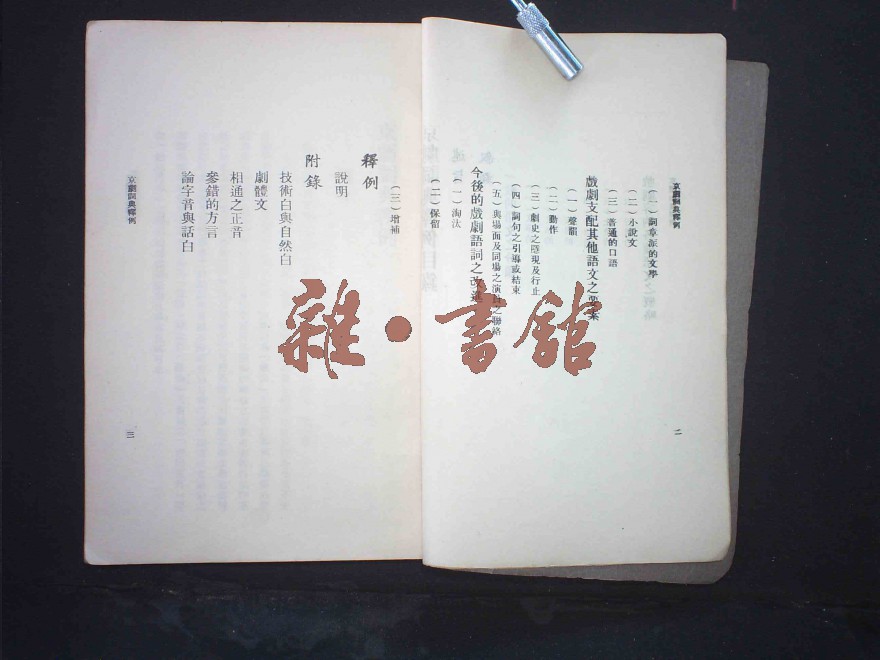 京劇詞典釋例
(一)詞章派的文學
(二)小說文
(三)普通的口語
戲劇支配其他語文之要素
(一)聲韻
(二)動作
(三)劇史之隱現及行止
(四)詞句之引導或結束
(五)與場面及同場之演員之聯絡
今後的戲劇語詞之改進
(一)淘汰
(二)保留
二
(三)增補
釋例
說明
附錄
技術白與自然白
劇體文
相通之正音
參錯的方言
論字音與話白
京劇詞典釋例
三
雜·書館